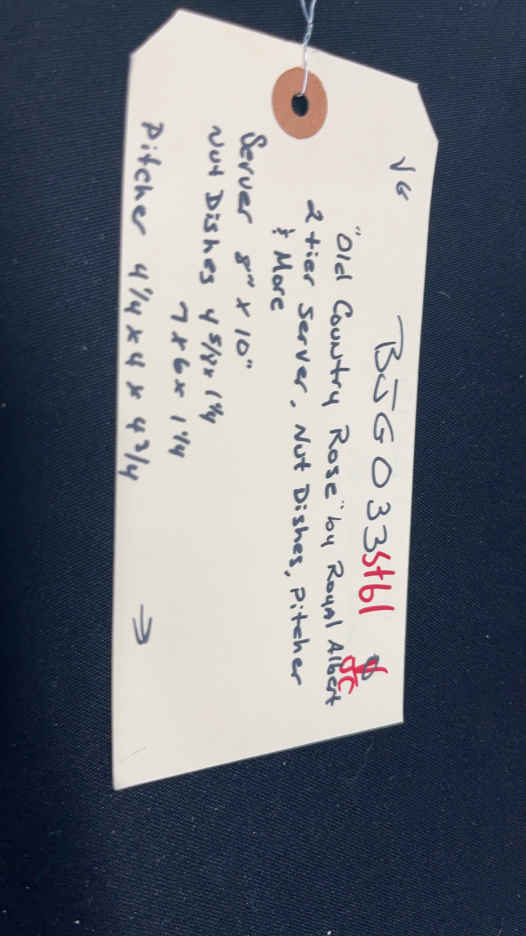 VG
BJG033stbl
"Old Country Rose" by Royal Albert
2 tier Server, Nut Dishes, Pitcher
& More
Server 8" x 10"
Nut Dishes 4 5/8 x 1 1/4
7 x 6 x 1 1/4
Pitcher 4 1/4 x 4 x 4 3/4
→